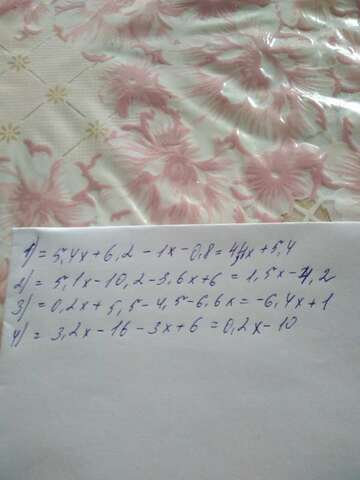 1) = 5,4x + 6,2 - 1x - 0,8 = 4,4x + 5,4
2) = 5,1x - 10,2 - 3,6x + 6 = 1,5x - 4,2
3) = 0,2x + 5,5 - 4,5 - 6,6x = -6,4x + 1
4) = 3,2x - 16 - 3x + 6 = 0,2x - 10